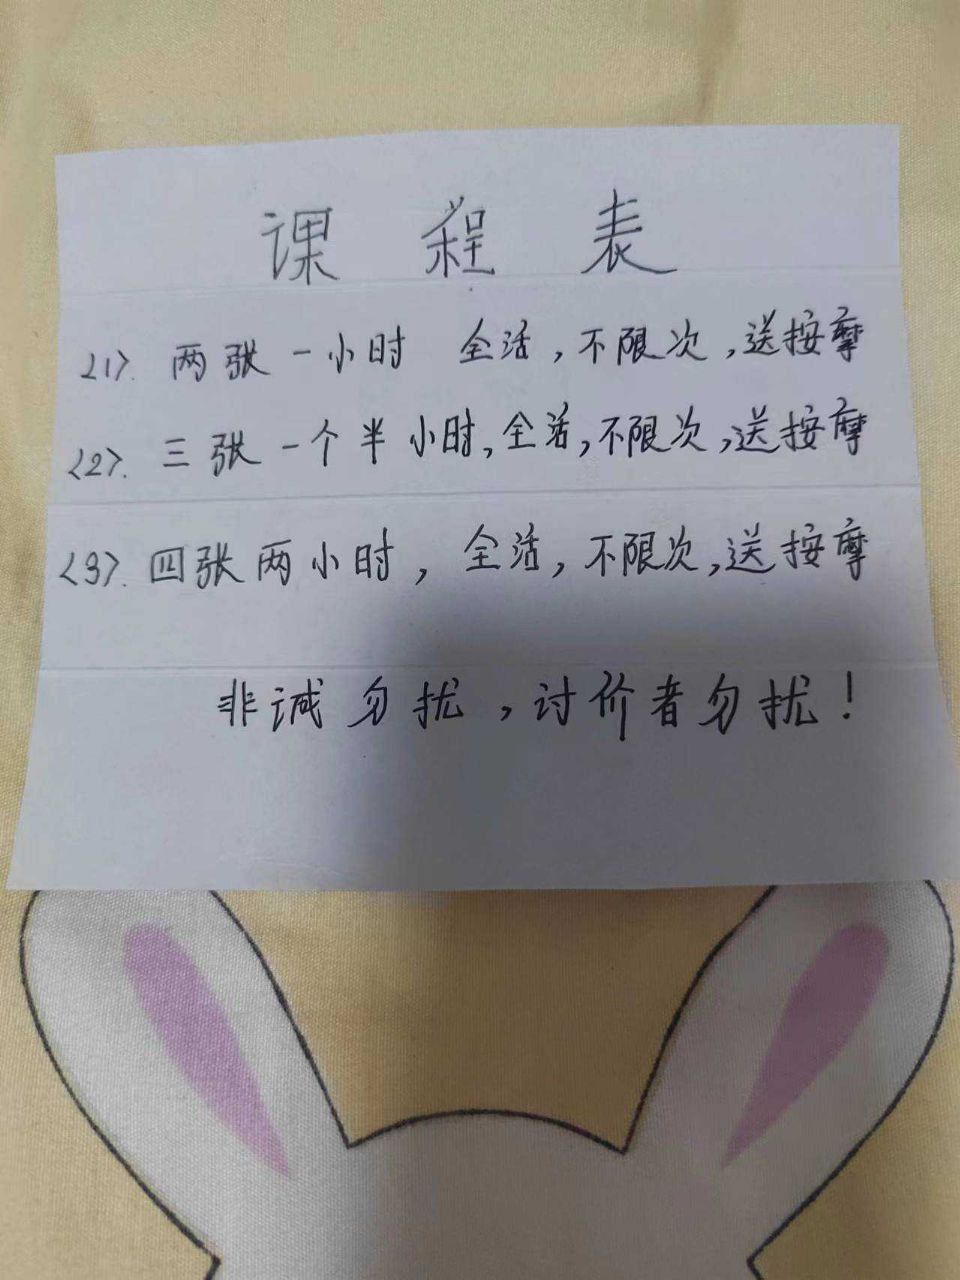 课程表
<1>. 两张一小时 全活,不限次,送按摩
<2>. 三张一个半小时,全活,不限次,送按摩
<3>. 四张两小时,全活,不限次,送按摩
非诚勿扰,讨价者勿扰!